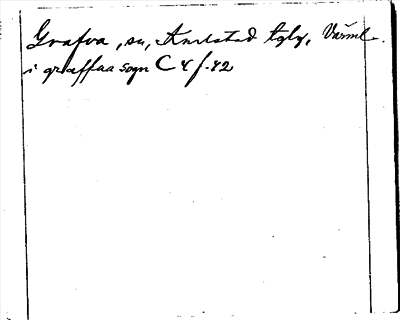 Grafva, sn, Karlstad tglg, Värml.
i graffaa sogn C 4 f. 42